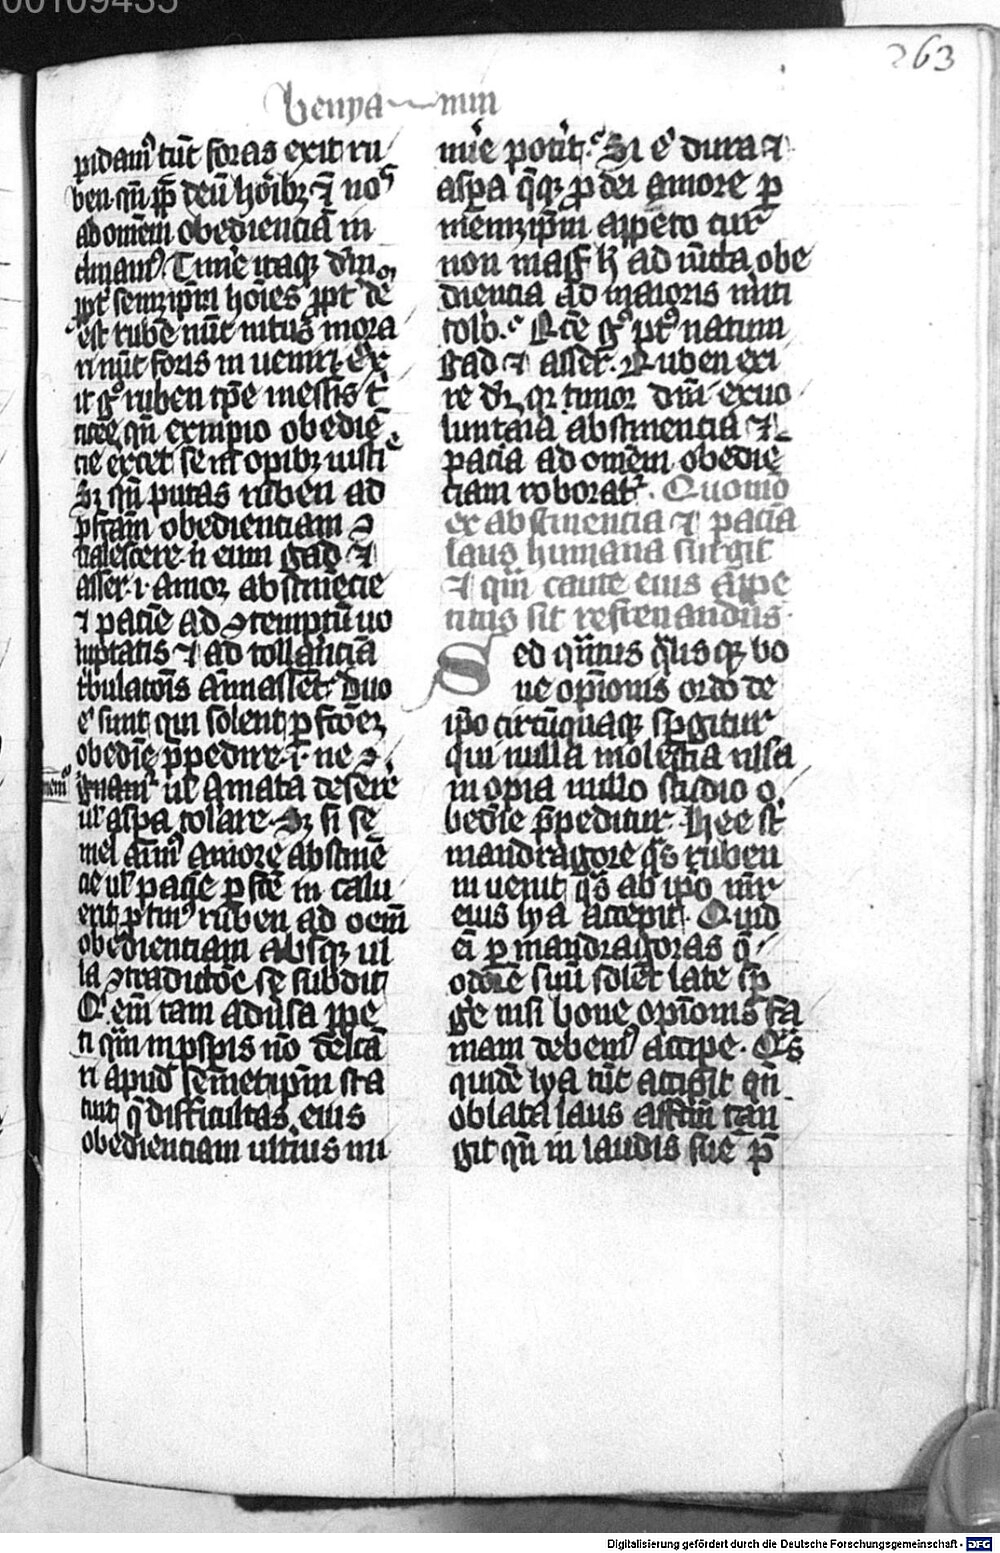 00109435
263
benya min
pidam᷒ tūc foras exit ru
ben qn̄ ꝓp̄ deū hōibꝫ ⁊ nō
ab omēm obedienciā in
clinam᷒. Timꝰe itaqꝫ dm̄
ꝓpt᷒ semꝫip̄m hōies ꝓpt᷒ dē
est rubē nūc intus mora
ri nūc foris in uenirꝫ Ex
it gᵒ ruben tp̄e messis t᷒
ticee, qn̄ exmpio obediē
cie excet se in opibꝫ iusti᷒
Sꝫ qn̄ putas ruben ad
ꝑfcām obedienciam ꝯ
ualescere n̄ eum gad ⁊
asser .i. amor abstinēcie
⁊ paciē ad ꝯtemptū uo
luptatis ⁊ ad tollanciā
tbulacōis aīmasset. Duo
eᷓ sunt qui solent ꝑfcōeꝫ
obediē ꝓpedire .i. ne ꝯ
ignam᷒ ul᷒ amata deserē
ul᷒ aspa tol᷒are. Sꝫ si se
mel aīm᷒ amore abstinē
cie ul᷒ pacie ꝑfcē in calu
erit ꝓtin᷒ ruben ad oēm
obedienciam absqꝫ ul
la ꝯtradictōe se subdit
Q᷒ eīm tam adūsa ꝓpe
ti qm̄ in ꝓspis nō delcā
ri apud semetip̄m sta
tuit q̄ difficultas eius
obedienciam ultius mi
nuē potit.ᷓ Si eᷓ dura ⁊
aspa q̄qꝫ ꝓ dei amore ꝑ
memꝫip̄m appeto cur
non magᷓ hͨ ad iūcta obe
diencia ad maioris mīti
tolb.ᷓ Rcē gᵒ ptᵒ natum
gad ⁊ asser. Ruben exi
re dꝛ, qꝛ timor dm̄i ex uo
luntaia abstinencia ⁊
pacia ad omēm obediē
ciam roboratᷓ. Quomō
ex abstinencia ⁊ paciā
laus humana surgit
⁊ qm̄ caute eius appe
titus sit refrenandus.
Sed qn̄tus q̄lisqꝫ bo
ne opīonis ordō de
ip̄o circūquaqꝫ spgitur
qui nulla molestia ulla
inopia nullo studio o
bediē ꝓpeditur. Hee st᷒
mandragore qᷤ ruben
in uenit qᷤ ab ip̄o mr᷒
eius lya accepit. Quid
eī ꝑ mandragoras q̄
odorē suū solēt late sp
gē nisi bone opīonis fa
mam debem᷒ accipe. Qᷤ
quidē lya tūc accipit qn̄
oblata laus affcm̄ tan
git qn̄ in laudis sue p̄
Digitalisierung gefördert durch die Deutsche Forschungsgemeinschaft - DFG